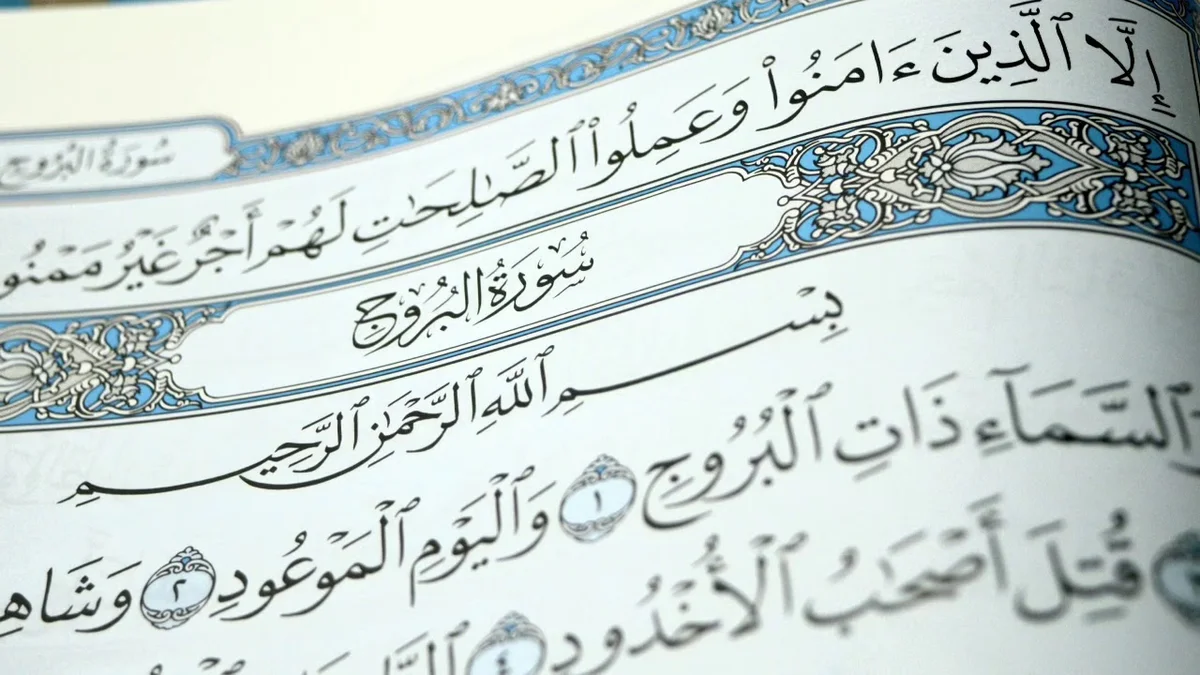 سُورَةُ البُرُوجِ
إِلَّا ٱلَّذِينَ ءَامَنُوا۟ وَعَمِلُوا۟ ٱلصَّـٰلِحَـٰتِ لَهُمْ أَجْرٌ غَيْرُ
سُورَةُ البُرُوجِ
بِسْمِ ٱللَّهِ ٱلرَّحْمَـٰنِ ٱلرَّحِيمِ
وَٱلسَّمَآءِ ذَاتِ ٱلْبُرُوجِ ١ وَٱلْيَوْمِ ٱلْمَوْعُودِ ٢
قُتِلَ أَصْحَـٰبُ ٱلْأُخْدُودِ ٤